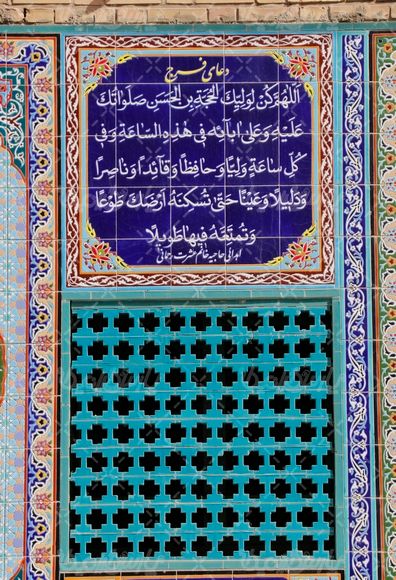 دعای فرج
اَللّهُمَّ كُنْ لِوَلِيِّكَ الْحُجَّةِ بْنِ الْحَسَنِ صَلَواتُكَ
عَلَيْهِ وَعَلى ابآئِهِ فى هذِهِ السّاعَةِ وَفى
كُلِّ ساعَةٍ وَلِيًّا وَحافِظًا وَقآئِدًا وَناصِرًا
وَدَليلًا وَعَيْنًا حَتّى تُسْكِنَهُ اَرْضَكَ طَوْعًا
وَتُمَتِّعَهُ فيها طَويلًا
اهدائی حاجیه خانم عشرت رحمانی